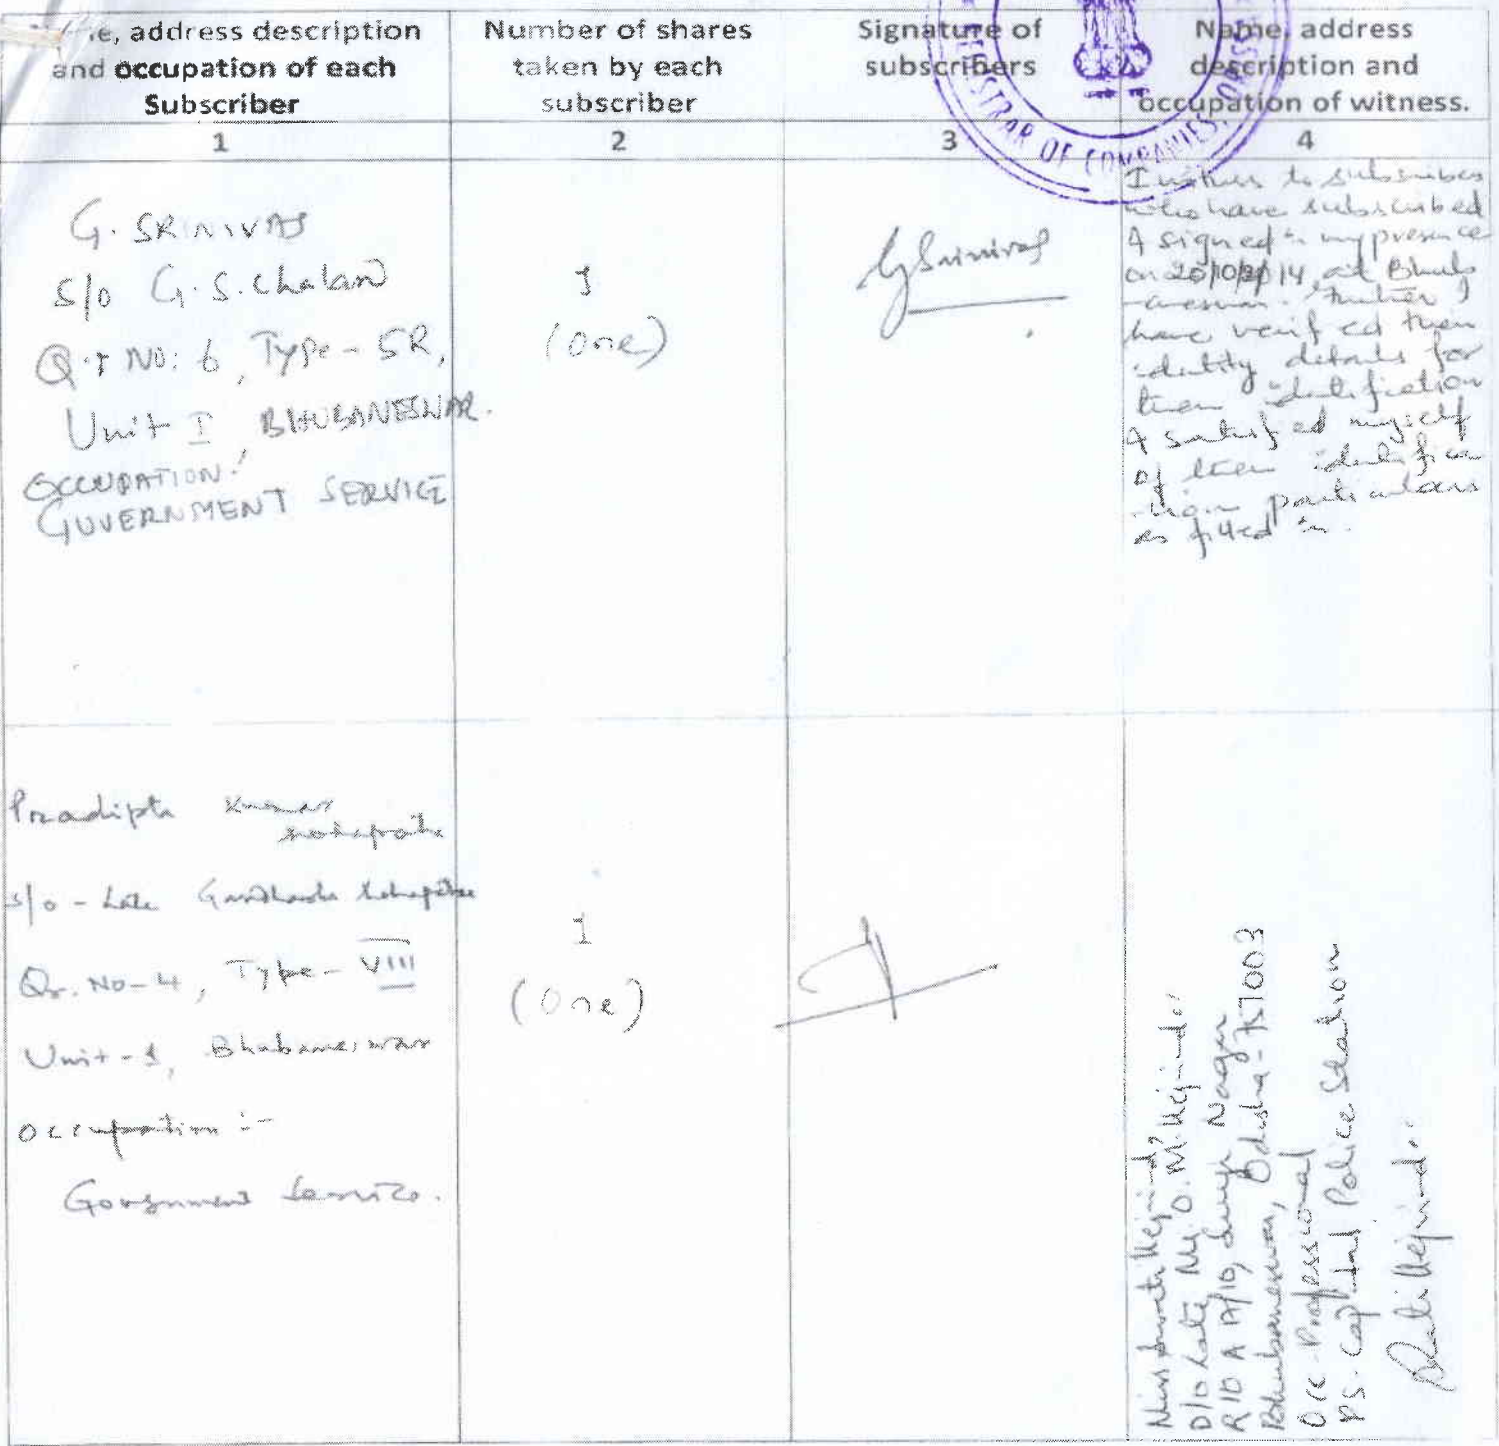 e, address description
and occupation of each
Subscriber
Number of shares
taken by each
subscriber
Signature of
subscribers
Name, address
description and
occupation of witness.
1
2
3
4
STRAR OF COMPANIES,
G. SRINIVAS
S/o G.S. Chalan
Q.r NO: 6, Type - 5R,
Unit I, BHUBANESWAR.
OCCUPATION:
GOVERNMENT SERVICE
1
(One)
G Srinivas
I witness to subscribers
who have subscribed
& signed in my presence
on 20/10/2014, at Bhub
-aneswar. Further I
have verified their
identity details for
their identification
& satisfied myself
of their identifica
-tion particulars
as filled in.
Pradipta Kumar
S/o - Late
Qr. No - 4, Type - VIII
Unit - 1, Bhubaneswar
Occupation :-
Government Service.
1
(One)
Miss
D/o Late Mr. O. M.
R/O A A/10, Nagar
Bhubaneswar, Odisha - 751003
Occ - Professional
PS. Capital Police Station